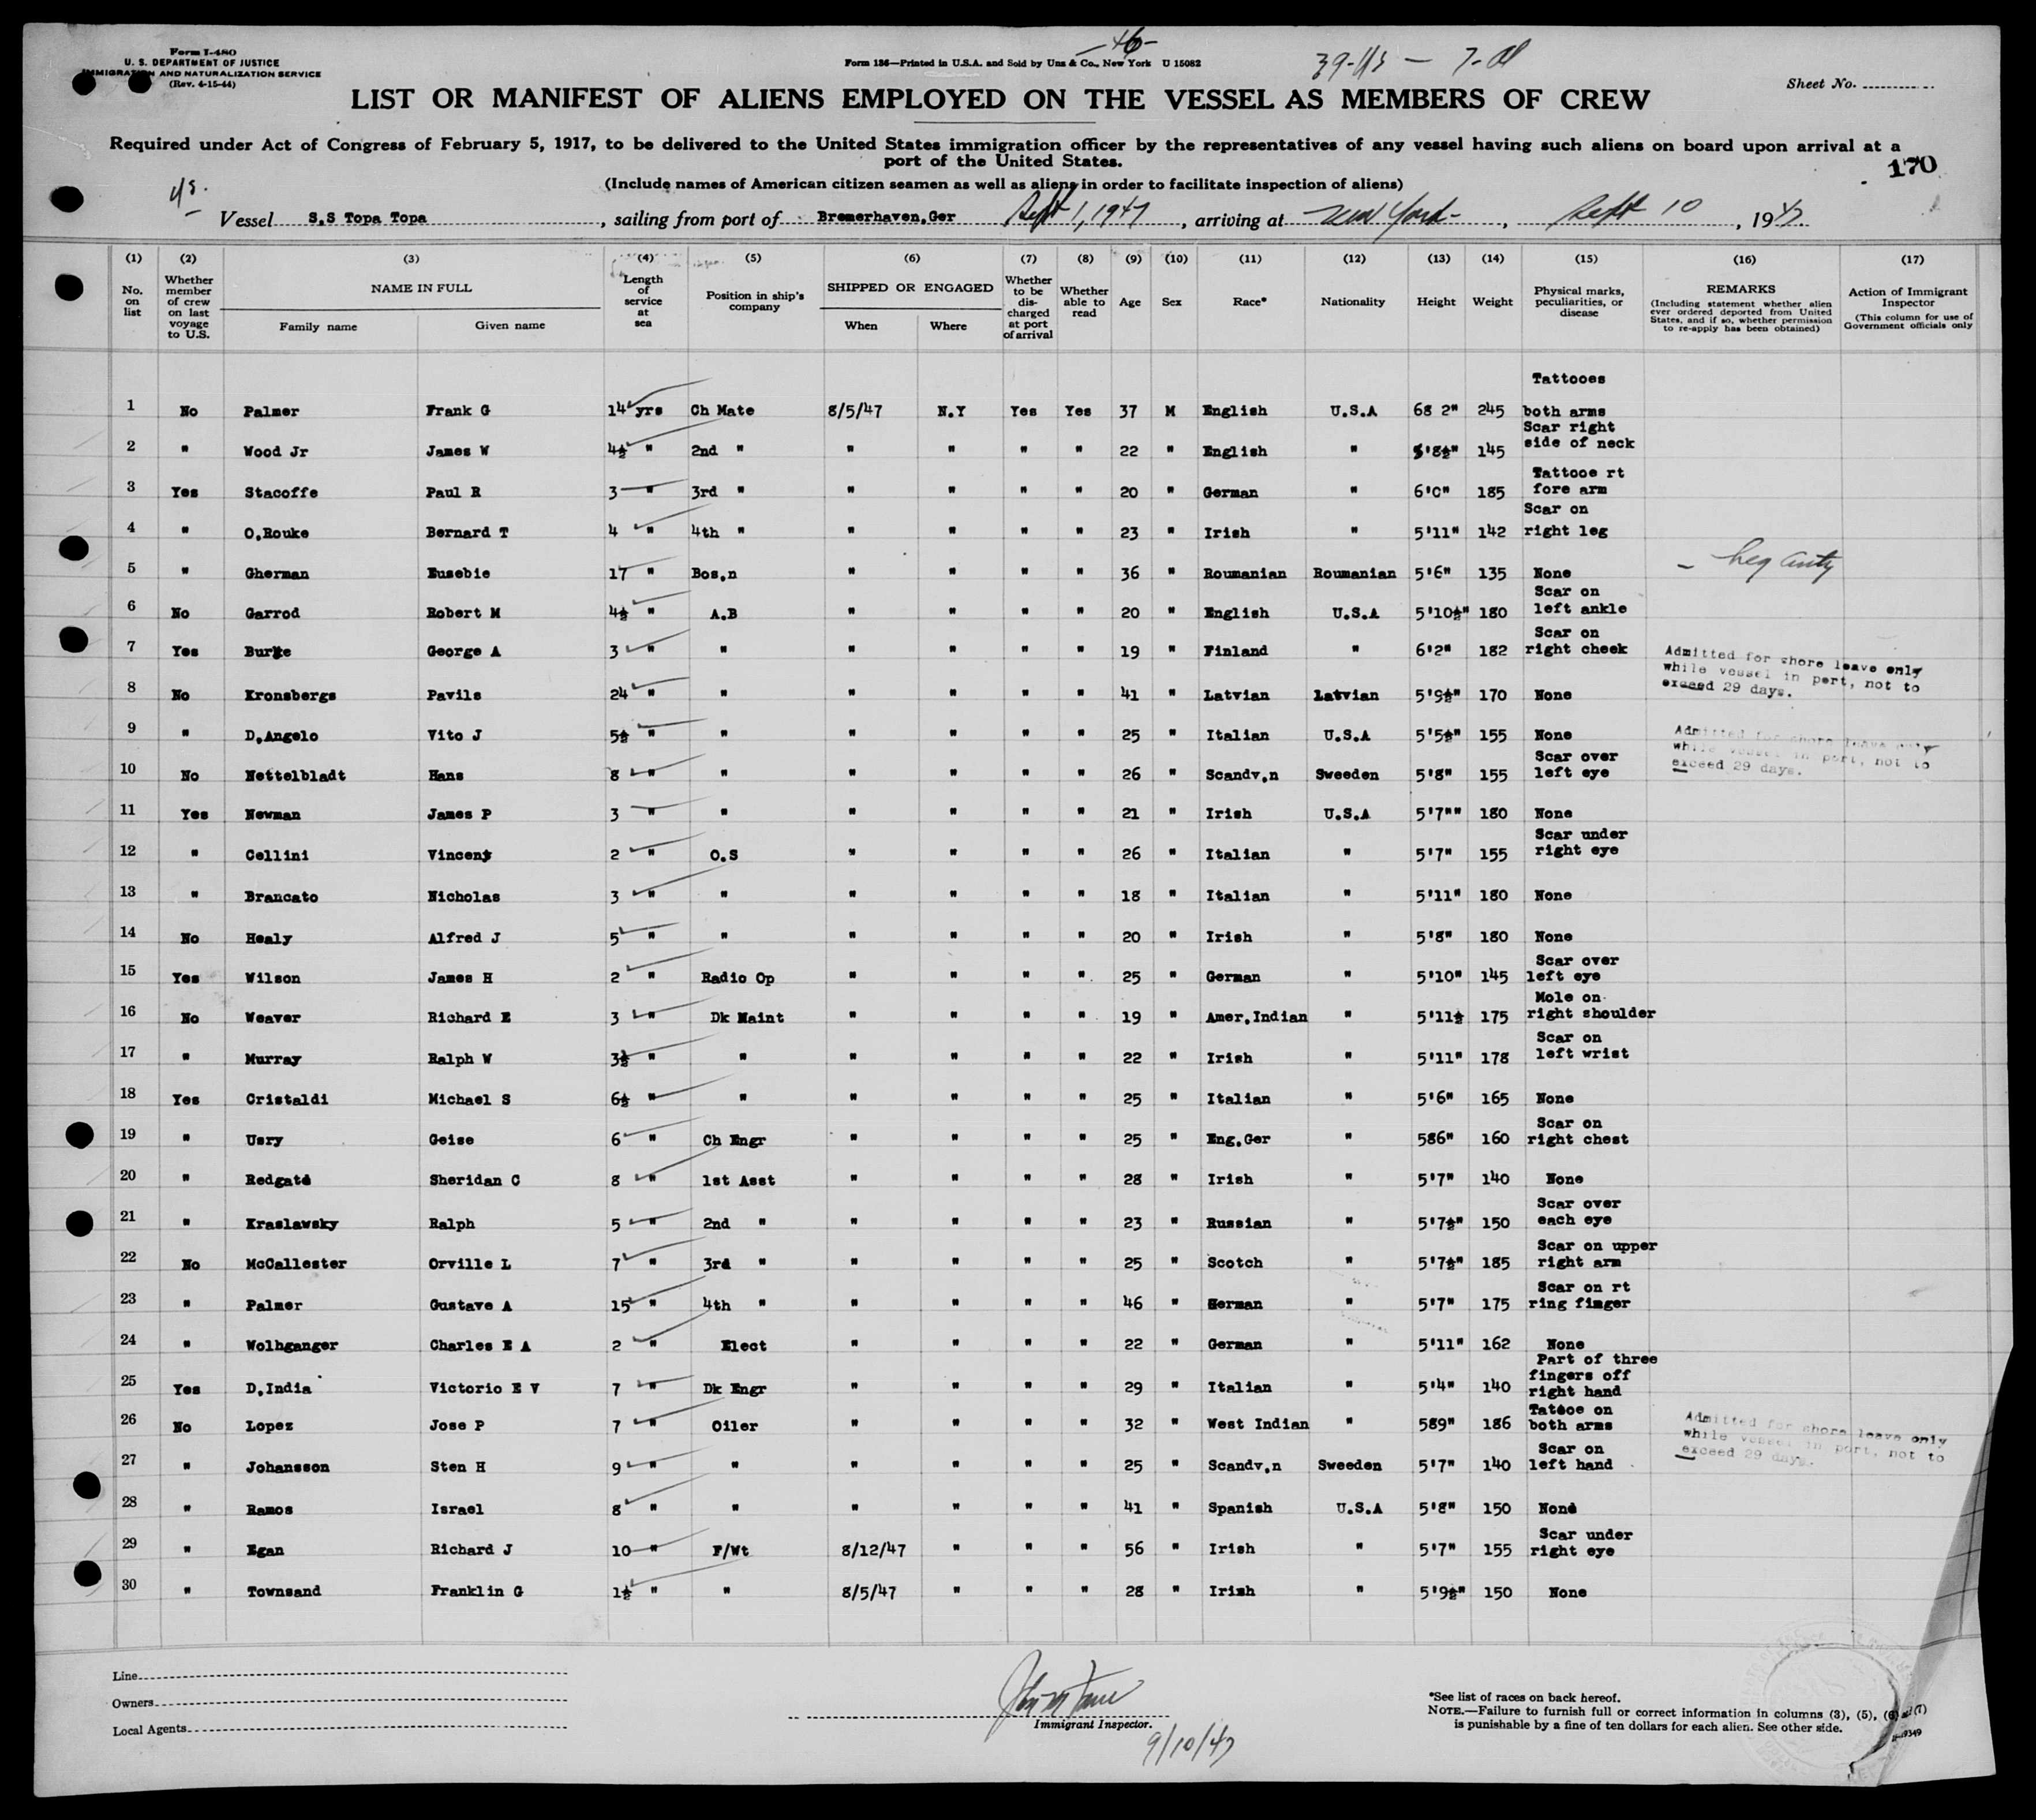 Form I-480
U. S. DEPARTMENT OF JUSTICE
IMMIGRATION AND NATURALIZATION SERVICE
(Rev. 4-15-44)
-46-
Form 136—Printed in U.S.A. and Sold by Unz & Co., New York U 15082
39-US — 7-Al
Sheet No.
LIST OR MANIFEST OF ALIENS EMPLOYED ON THE VESSEL AS MEMBERS OF CREW
Required under Act of Congress of February 5, 1917, to be delivered to the United States immigration officer by the representatives of any vessel having such aliens on board upon arrival at a
port of the United States.
170
(Include names of American citizen seamen as well as aliens in order to facilitate inspection of aliens)
US.
Vessel S.S Topa Topa, sailing from port of Bremerhaven,Ger Sept 1, 1947, arriving at New York, Sept 10, 1947.
(1) (2) (3) (4) (5) (6) (7) (8) (9) (10) (11) (12) (13) (14) (15) (16) (17)
No. on list
Whether member of crew on last voyage to U.S.
NAME IN FULL
Family name Given name
Length of service at sea
Position in ship's company
SHIPPED OR ENGAGED
When Where
Whether to be discharged at port of arrival
Whether able to read
Age Sex Race* Nationality Height Weight
Physical marks, peculiarities, or disease
REMARKS
(Including statement whether alien ever ordered deported from United States, and if so, whether permission to re-apply has been obtained)
Action of Immigrant Inspector
(This column for use of Government officials only
1 No Palmer Frank G 14 yrs Ch Mate 8/5/47 N.Y Yes Yes 37 M English U.S.A 68 2" 245 Tattooes both arms
2 " Wood Jr James W 4½ " 2nd " " " " " 22 " English " 5'8½" 145 Scar right side of neck
3 Yes Stacoffe Paul R 3 " 3rd " " " " " 20 " German " 6'0" 185 Tattooe rt fore arm
4 " O,Rouke Bernard T 4 " 4th " " " " " 23 " Irish " 5'11" 142 Scar on right leg
5 " Gherman Eusebie 17 " Bos,n " " " " 36 " Roumanian Roumanian 5'6" 135 None
6 No Garrod Robert M 4½ " A.B " " " " 20 " English U.S.A 5'10½" 180 Scar on left ankle
7 Yes Burke George A 3 " " " " " " 19 " Finland " 6'2" 182 Scar on right cheek
8 No Kronsbergs Pavils 24 " " " " " " 41 " Latvian Latvian 5'9½" 170 None Admitted for shore leave only while vessel in port, not to exceed 29 days.
9 " D,Angelo Vito J 5½ " " " " " " 25 " Italian U.S.A 5'5½" 155 None
10 No Nettelbladt Hans 8 " " " " " " 26 " Scandv,n Sweeden 5'8" 155 Scar over left eye Admitted for shore leave only while vessel in port, not to exceed 29 days.
11 Yes Newman James P 3 " " " " " " 21 " Irish U.S.A 5'7"" 180 None
12 " Cellini Vincent 2 " O.S " " " " 26 " Italian " 5'7" 155 Scar under right eye
13 " Brancato Nicholas 3 " " " " " " 18 " Italian " 5'11" 180 None
14 No Healy Alfred J 5 " " " " " " 20 " Irish " 5'8" 180 None
15 Yes Wilson James H 2 " Radio Op " " " " 25 " German " 5'10" 145 Scar over left eye
16 No Weaver Richard E 3 " Dk Maint " " " " 19 " Amer.Indian " 5'11½ 175 Mole on right shoulder
17 " Murray Ralph W 3½ " " " " " " 22 " Irish " 5'11" 178 Scar on left wrist
18 Yes Cristaldi Michael S 6½ " " " " " " 25 " Italian " 5'6" 165 None
19 " Usry Geise 6 " Ch Engr " " " " 25 " Eng.Ger " 586" 160 Scar on right chest
20 " Redgate Sheridan C 8 " 1st Asst " " " " 28 " Irish " 5'7" 140 None
21 " Kraslawsky Ralph 5 " 2nd " " " " " 23 " Russian " 5'7½" 150 Scar over each eye
22 No McCallester Orville L 7 " 3rd " " " " " 25 " Scotch " 5'7½" 185 Scar on upper right arm
23 " Palmer Gustave A 15 " 4th " " " " " 46 " German " 5'7" 175 Scar on rt ring finger
24 " Wolhganger Charles E A 2 " Elect " " " " 22 " German " 5'11" 162 None
25 Yes D,India Victorio E V 7 " Dk Engr " " " " 29 " Italian " 5'4" 140 Part of three fingers off right hand
26 No Lopez Jose P 7 " Oiler " " " " 32 " West Indian " 589" 186 Tatooe on both arms
27 " Johansson Sten H 9 " " " " " " 25 " Scandv,n Sweeden 5'7" 140 Scar on left hand Admitted for shore leave only while vessel in port, not to exceed 29 days.
28 " Ramos Israel 8 " " " " " " 41 " Spanish U.S.A 5'8" 150 None
29 " Egan Richard J 10 " F/Wt 8/12/47 " " " 56 " Irish " 5'7" 155 Scar under right eye
30 " Townsand Franklin G 1½ " " 8/5/47 " " " 28 " Irish " 5'9½" 150 None
Line
Owners
Local Agents
Immigrant Inspector.
9/10/47
*See list of races on back hereof.
NOTE.—Failure to furnish full or correct information in columns (3), (5), (6) and (7)
is punishable by a fine of ten dollars for each alien. See other side.